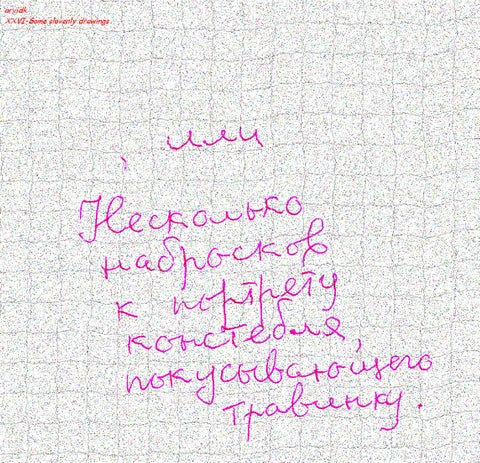 arvidk
XXVI-Some slovenly drawings
или
Несколько
набросков
к портрету
констебля,
покусывающего
травинку.